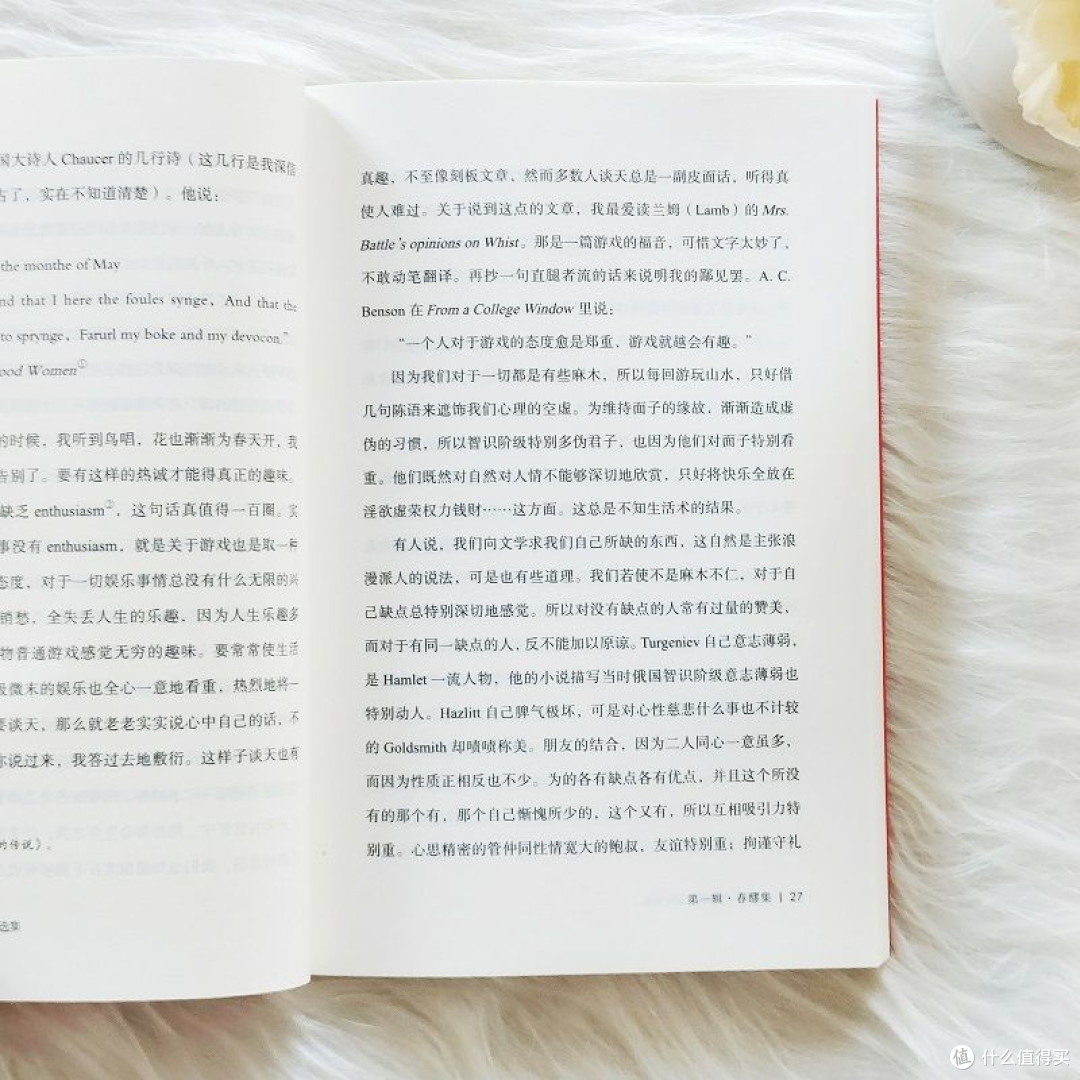 国大诗人 Chaucer 的几行诗（这几行是我深信
古了，实在不知道清楚）。他说：
the monthe of May
nd that I here the foules synge，And that the
to sprynge，Farurl my boke and my devocon.”
ood Women①
的时候，我听到鸟唱，花也渐渐为春天开，我
告别了。要有这样的热诚才能得真正的趣味。
缺乏 enthusiasm②，这句话真值得一百圈。实
事没有 enthusiasm，就是关于游戏也是取一种
态度，对于一切娱乐事情总没有什么无限的兴
销愁，全失丢人生的乐趣，因为人生乐趣多
物普通游戏感觉无穷的趣味。要常常使生活
极微末的娱乐也全心一意地看重，热烈地将一
要谈天，那么就老老实实说心中自己的话，不
你说过来，我答过去地敷衍。这样子谈天也有
的传说》。
选集
真趣，不至像刻板文章，然而多数人谈天总是一副皮面话，听得真
使人难过。关于说到这点的文章，我最爱读兰姆（Lamb）的 Mrs.
Battle’s opinions on Whist。那是一篇游戏的福音，可惜文字太妙了，
不敢动笔翻译。再抄一句直腿者流的话来说明我的鄙见罢。A. C.
Benson 在 From a College Window 里说：
“一个人对于游戏的态度愈是郑重，游戏就越会有趣。”
因为我们对于一切都是有些麻木，所以每回游玩山水，只好借
几句陈语来遮饰我们心理的空虚。为维持面子的缘故，渐渐造成虚
伪的习惯，所以智识阶级特别多伪君子，也因为他们对面子特别看
重。他们既然对自然对人情不能够深切地欣赏，只好将快乐全放在
淫欲虚荣权力钱财……这方面。这总是不知生活术的结果。
有人说，我们向文学求我们自己所缺的东西，这自然是主张浪
漫派人的说法，可是也有些道理。我们若使不是麻木不仁，对于自
己缺点总特别深切地感觉。所以对没有缺点的人常有过量的赞美，
而对于有同一缺点的人，反不能加以原谅。Turgeniev 自己意志薄弱，
是 Hamlet 一流人物，他的小说描写当时俄国智识阶级意志薄弱也
特别动人。Hazlitt 自己脾气极坏，可是对心性慈悲什么事也不计较
的 Goldsmith 却啧啧称美。朋友的结合，因为二人同心一意虽多，
而因为性质正相反也不少。为的各有缺点各有优点，并且这个所没
有的那个有，那个自己惭愧所少的，这个又有，所以互相吸引力特
别重。心思精密的管仲同性情宽大的鲍叔，友谊特别重；拘谨守礼
第一辑·春醪集 | 27
值 什么值得买